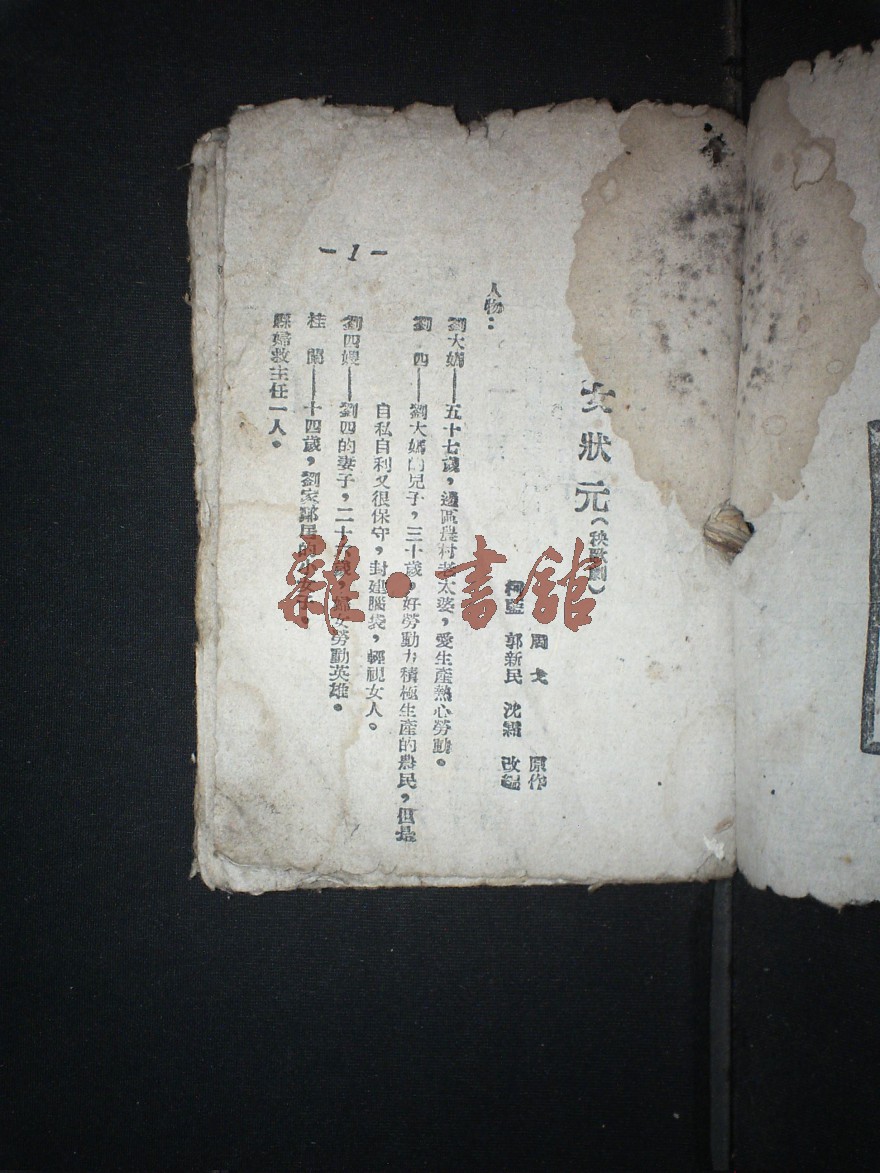 女狀元（秧歌劇）
周戈 原作
柯藍 郭新民 沈霜 改編
人物：
劉大媽——五十七歲，邊區農村老太婆，愛生產熱心勞動。
劉 四——劉大媽的兒子，三十歲。好勞動力積極生產的農民，但是
自私自利又很保守，封建腦袋，輕視女人。
劉四嫂——劉四的妻子，二十歲，婦女勞動英雄。
桂 蘭——十四歲，劉家鄰居的小女子。
縣婦救主任一人。
－1－
雜·書館